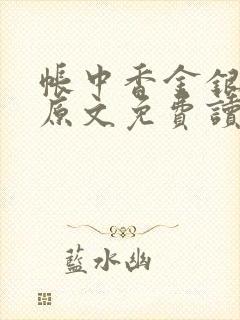 帳中香金銀
原文免費讀
藍水幽